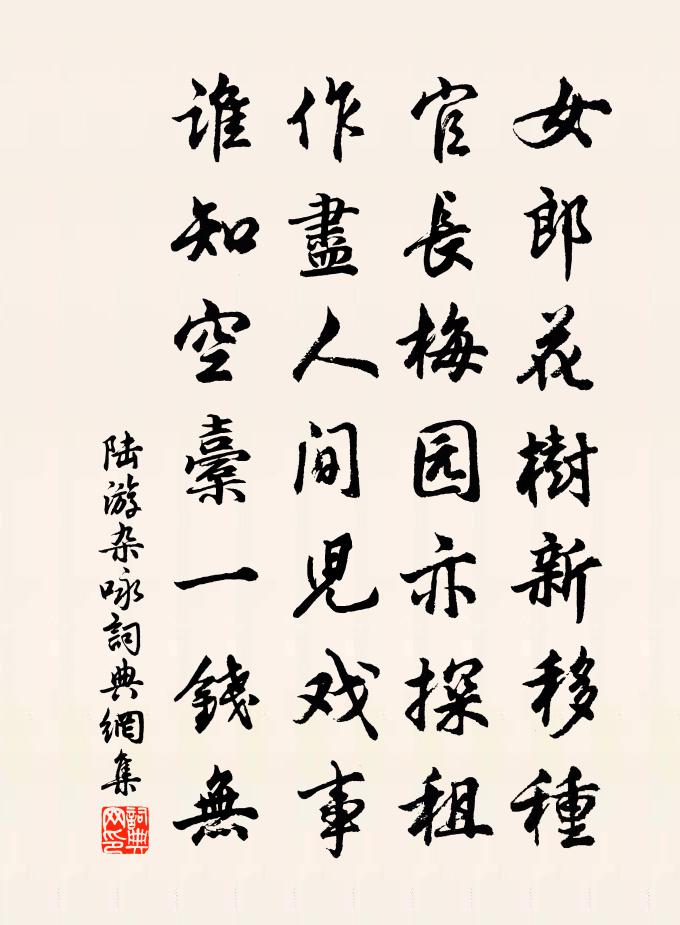 女郎花樹新移種
官長梅园亦探租
作盡人间兒戏事
誰知空橐一錢無
陆游杂咏詞典網集
詞典網印